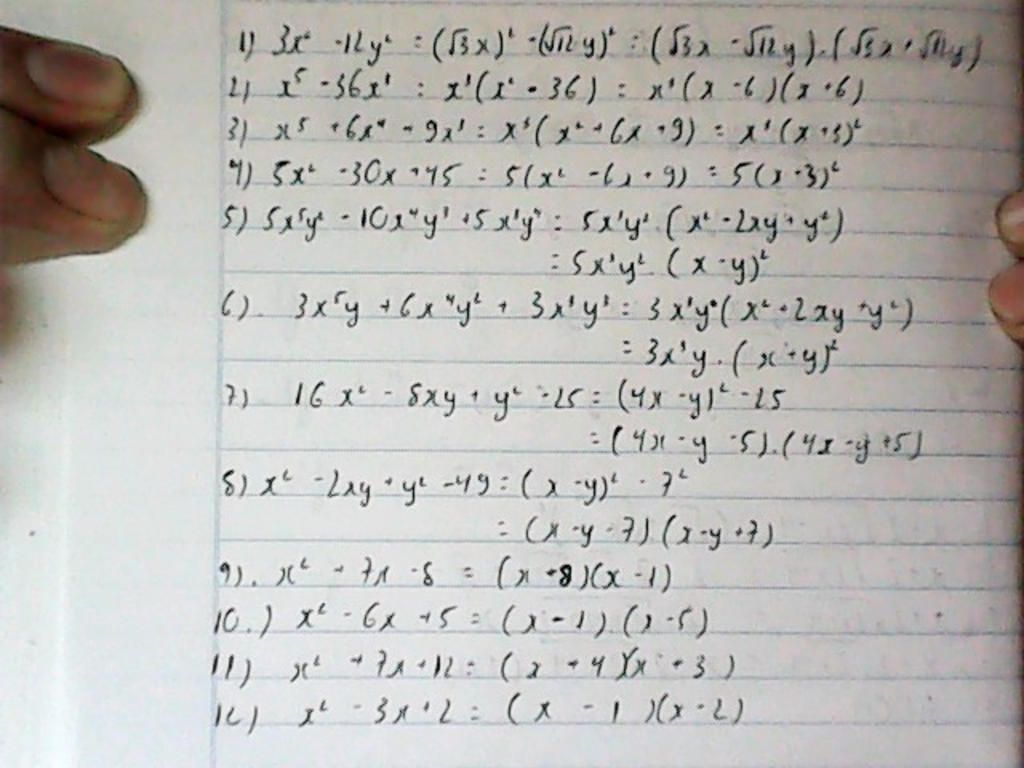 1) 3x² - 12y² = (√3x)² - (√12y)² = (√3x - √12y).(√3x + √12y)
2) x⁵ - 36x³ = x³(x² - 36) = x³(x - 6)(x + 6)
3) x⁵ + 6x⁴ + 9x³ = x³(x² + 6x + 9) = x³(x + 3)²
4) 5x² - 30x + 45 = 5(x² - 6x + 9) = 5(x - 3)²
5) 5x⁵y² - 10x⁴y³ + 5x³y⁴ = 5x³y².(x² - 2xy + y²)
= 5x³y².(x - y)²
6). 3x⁵y + 6x⁴y² + 3x³y³ = 3x³y(x² + 2xy + y²)
= 3x³y.(x + y)²
7) 16x² - 8xy + y² - 25 = (4x - y)² - 25
= (4x - y - 5).(4x - y + 5)
8) x² - 2xy + y² - 49 = (x - y)² - 7²
= (x - y - 7)(x - y + 7)
9). x² + 7x - 8 = (x + 8)(x - 1)
10.) x² - 6x + 5 = (x - 1).(x - 5)
11) x² + 7x + 12 = (x + 4)(x + 3)
12) x² - 3x + 2 = (x - 1)(x - 2)